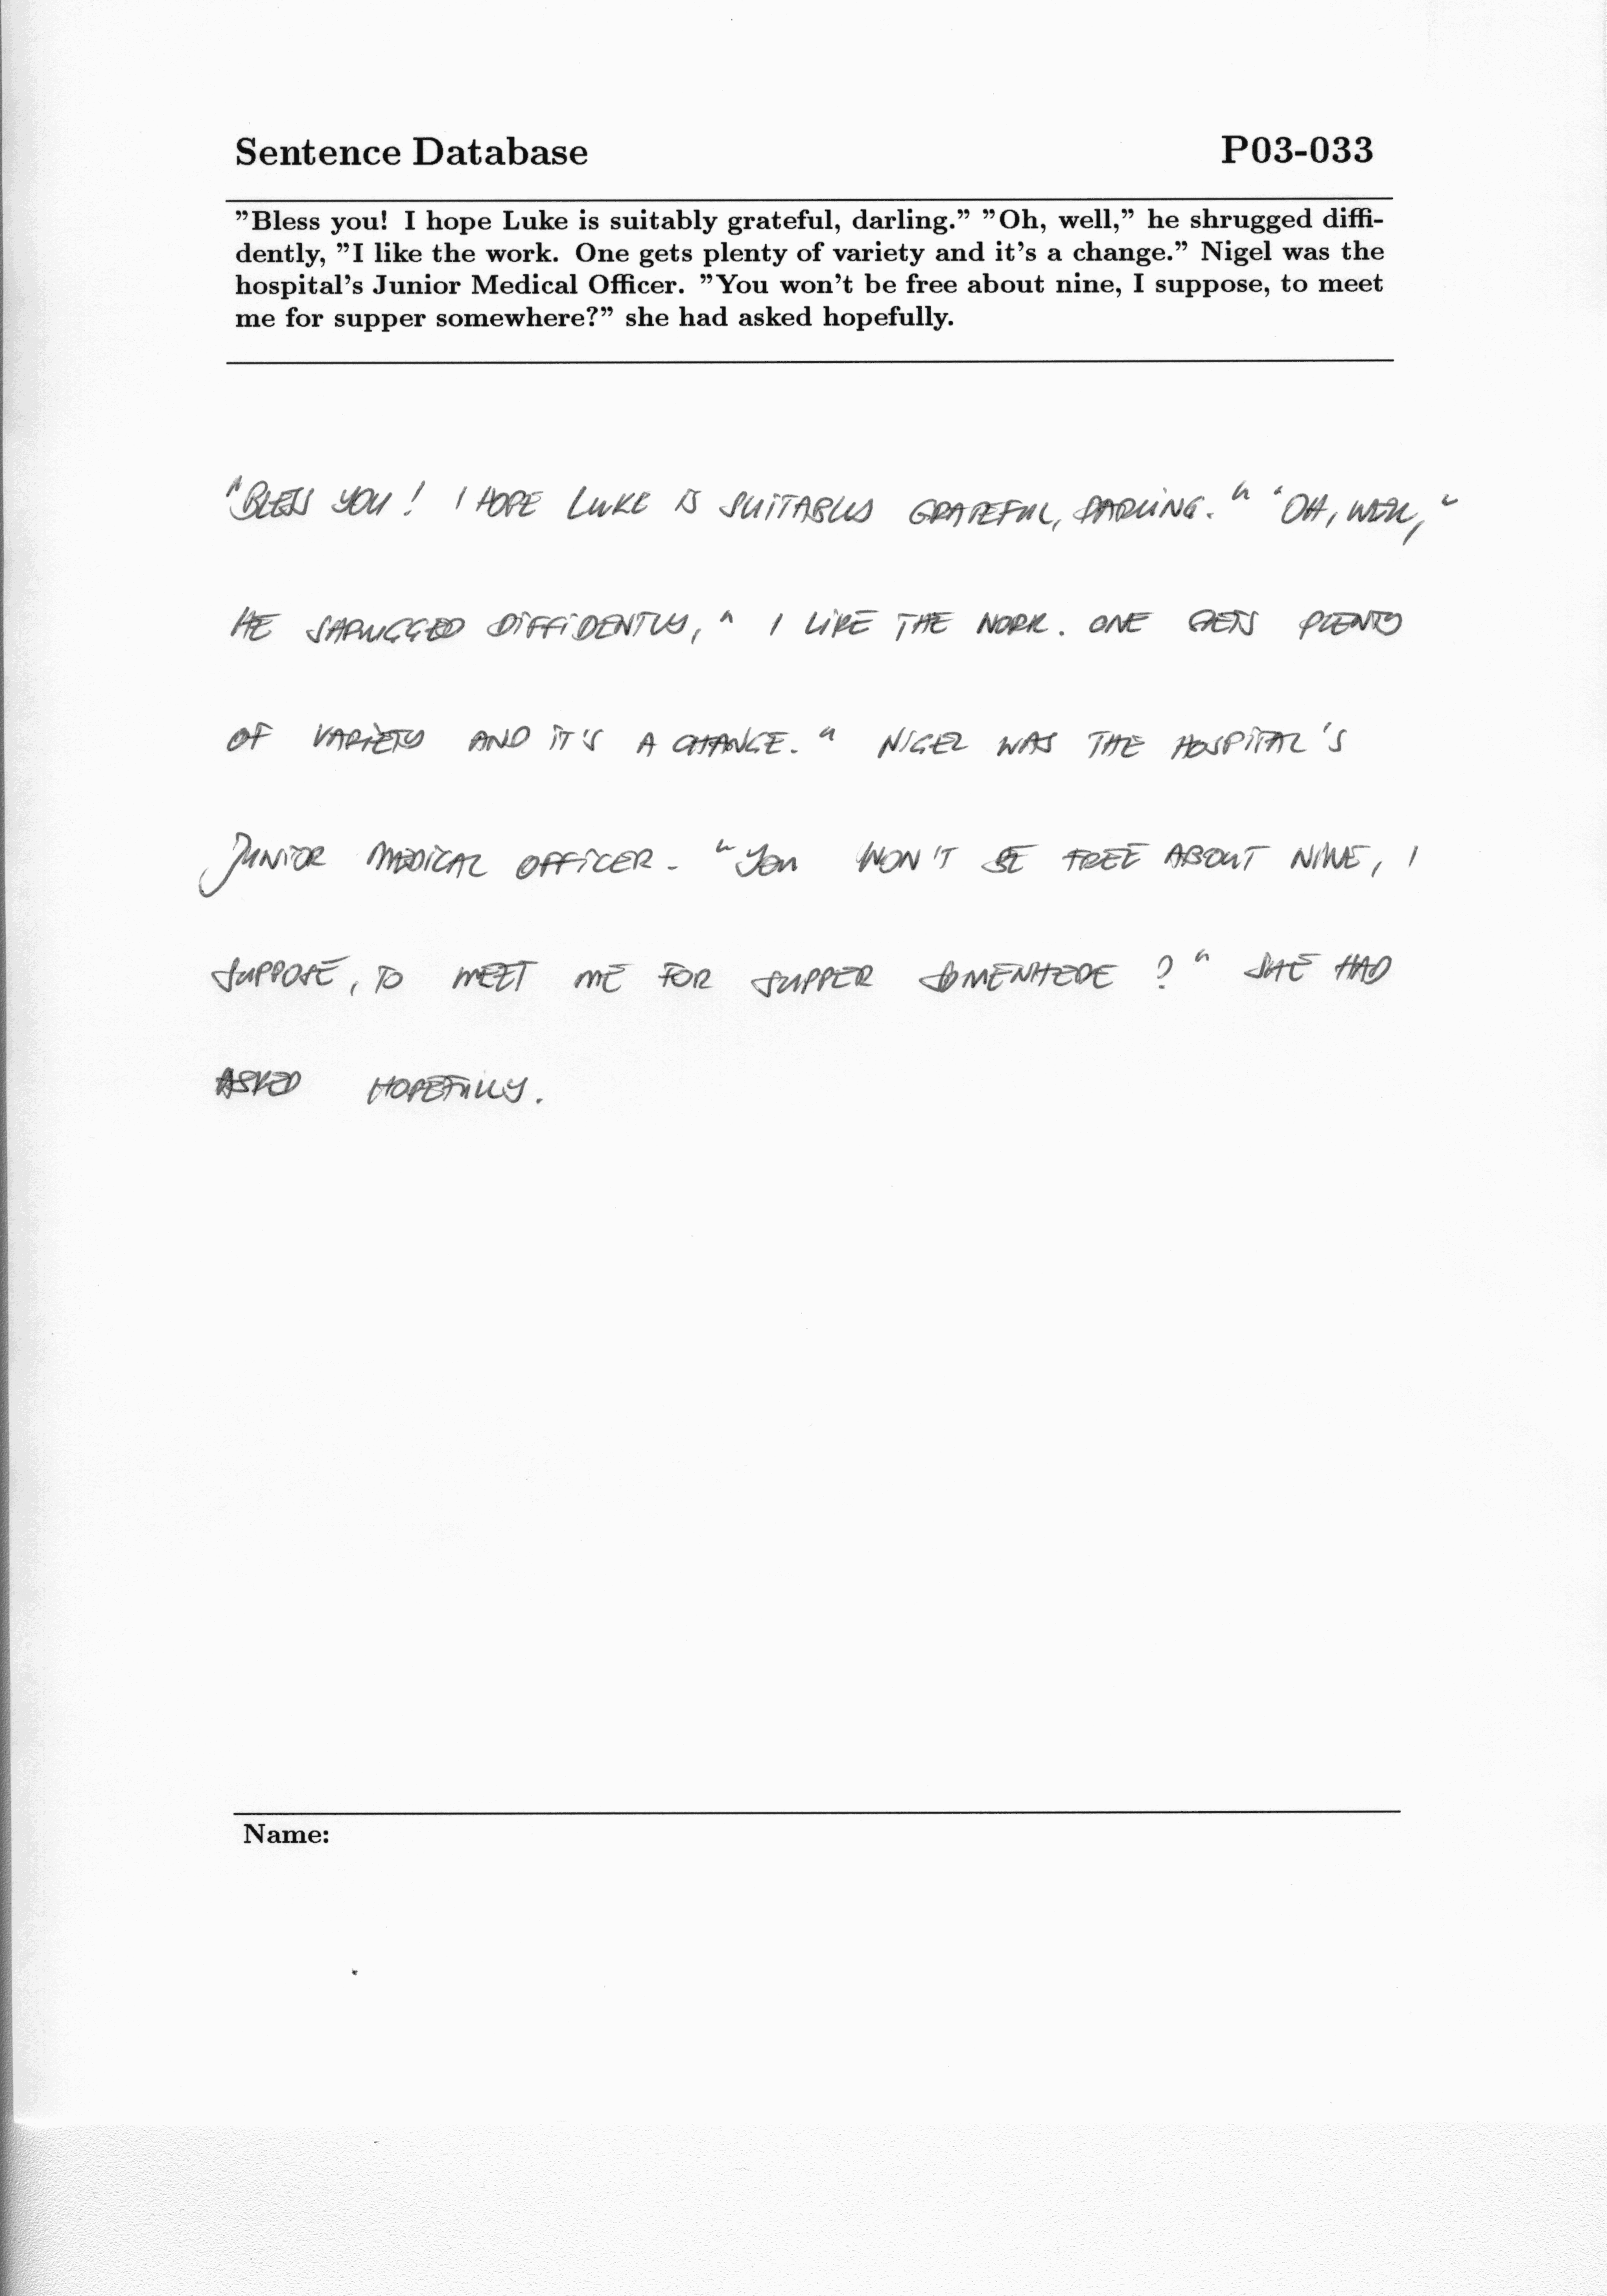 Sentence Database P03-033
"Bless you! I hope Luke is suitably grateful, darling." "Oh, well," he shrugged diffi-
dently, "I like the work. One gets plenty of variety and it's a change." Nigel was the
hospital's Junior Medical Officer. "You won't be free about nine, I suppose, to meet
me for supper somewhere?" she had asked hopefully.
"BLESS YOU! I HOPE LUKE IS SUITABLY GRATEFUL, DARLING." "OH, WELL,"
HE SHRUGGED DIFFIDENTLY, " I LIKE THE WORK. ONE GETS PLENTY
OF VARIETY AND IT'S A CHANGE." NIGEL WAS THE HOSPITAL'S
JUNIOR MEDICAL OFFICER. "YOU WON'T BE FREE ABOUT NINE, I
SUPPOSE, TO MEET ME FOR SUPPER SOMEWHERE ?" SHE HAD
ASKED HOPEFULLY.
Name: